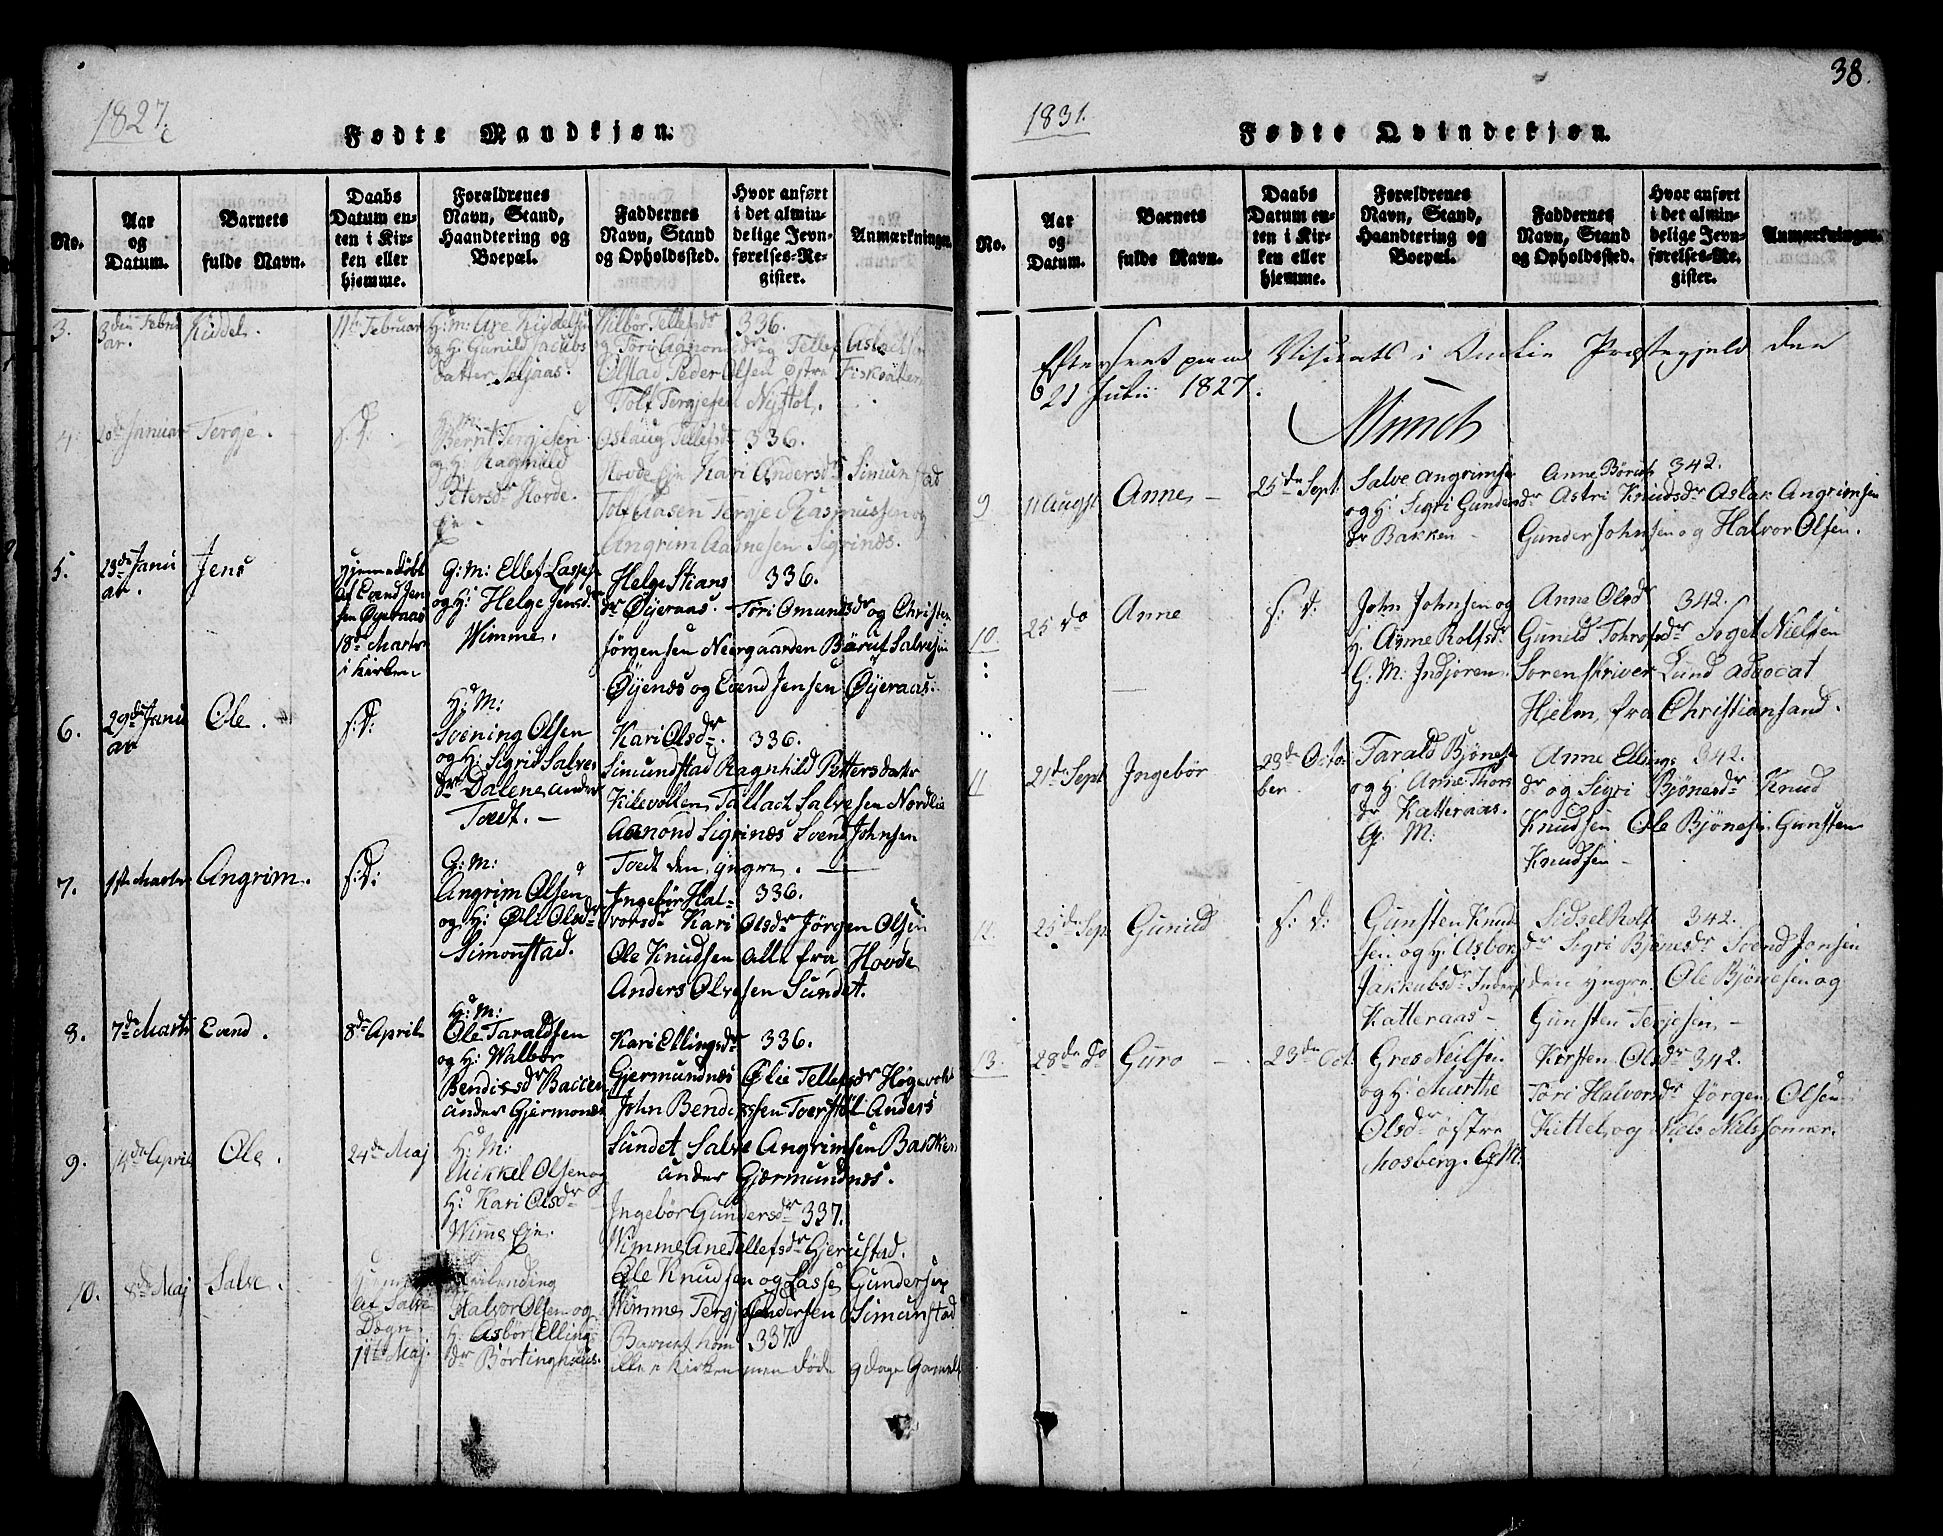 1827
Fødte Mandkjøn.
No.
Aar
og
Datum.
Barnets
fulde Navn.
Daabs
Datum en-
ten i Kir-
ken eller
hjemme.
Forældrenes
Navn, Stand,
Haandtering og
Boepæl.
Faddernes
Navn, Stand
og Opholdssted.
Hvor anført
i det almin-
delige Jevn-
førelses-Re-
gister.
Anmærkninger.
3. 3die Febru
ar.
Kiddel.
11te Februar
H: M: Are Kiddelsen
og H: Gunild Jacobs
datter Selaas.
Wilbør Tellefsdr 336.
og Töri Aanonsdr og Tellef Aslacksen
Olstad Peder Olsen østre Fisketien
Tolf Tergjesen Nystöl.
4. 20de Januar Tergje. s. D.
H: M:
Bernt Tergjesen
og H: Ragnild
Petersdr Hovde.
Eje.
Aslaug Tellefsdr 336.
Hovde Eje Kari Andersdr Simunstad
Tolf Aasen Tergje Rasmussen og
Angrim Aanesen Sigrinæs.
5. 23de Janu
ar.
Jens
Hjemmedøbt
af Evend Jen
sen Øyeraas
18de Marts
i Kirken
G: M: Ellef Lassesen
og H: Helge Jensdr
Wimme.
Helge Stians 336.
dr Øyeraas. Töri Omundsdr og Christen
Jörgensen Neergaarden Børut Salvesen
Øyenæs og Evend Jensen Øyeraas.
6. 29de Janu
ar
Ole. s: D:
H: M:
Soening Olsen
og H: Sigrid Salves
dr Dalene under
Toedt.
Kari Olsdr 336.
Simundstad Ragnhild Pettersdatter
Kilevolten Tallach Salvesen Nordlie
Aanond Sigrinæs Svend Johnsen
Toedt den yngre.
7. 1ste Marts Angrim. s: D:
G: M:
Angrim Olsen
og H: Øli Olsdr
Simonstad.
Ingebør Hal- 336.
vorsdr Kari Olsdr Jörgen Olsen
Ole Knudsen alle fra Hovde
Anders Olvesen Sundet.
8. 7de Marts Evend. 8de April
H: M:
Ole Taraldsen
og H: Wilbør
Bendixsdr Backen
under Gjermones
Kari Ellingsdr 336.
Gjermundnes Ølie Tellefsdr Høgevolt
John Bendixsen Toerstøl Anders
Sundet Salve Angrimsen Bakken
under Gjærmundnes.
9. 14de April Ole. 24de Maj
H: M:
Mikkel Olsen og
H: Kari Olsdr
Wimme Eje.
Ingebør Gundersdr 337.
Wimme Ane Tellefsdr Gjerustad.
Ole Knudsen og Lasse Gundersen
Wimme Tergje Andersen Simunstad
10. 8de Maj Salve.
af Salve
Dogn.
11te Maj.
Halvor Olsen og
H: Asbør Ellings
dr Børtinghuus.
Barnet kom 337
ille i Kirken men døde 9 dage Gammelt
38.
1831.
Fødte Qvindekjøn.
No.
Aar
og
Datum.
Barnets
fulde Navn.
Daabs
Datum en-
ten i Kir-
ken eller
hjemme.
Forældrenes
Navn, Stand,
Haandtering og
Boepæl.
Faddernes
Navn, Stand
og Opholdssted.
Hvor anført
i det almin-
delige Jevn-
førelses-Re-
gister.
Anmærkninger.
Efterseet paa Visitats i Omlie Præstegjeld den
21 Julii 1827.
Munch
9 11 Augst Anne 25de Sept.
Salve Angrimsen
og H: Sigri Gunders
dr Bakken
Anne Børuts 342.
dr Astri Knudsdr Aslak Angrimsen
Gunder Johnsen og Halvor Olsen.
10. 25 do Anne s: D:
John Johnsen og
H. Anne Rolfsdr
G: M: Indjoren
Anne Olsdr 342.
Gunild Tohrolfsdr Foget Nielsen
Sorenskriver Lund Advocat
Hjelm fra Christiansand.
11 21de Sept Ingebør 23de Octo
ber.
Tarald Bjønesen
og H. Anne Thors
dr Katteraas.
G: M:
Anne Ellings 342.
dr og Sigri Bjønesdr Knud
Knudsen Ole Bjønesen Gunsten
Knudsen
12. 25de Sep. Gunild s: D:
Gunsten Knud
sen og H. Asborg
Jakkubsdr Inders
Katteraas
Sidsel Rolfs 342.
dr Sigri Bjønesdr Svend Jonsen
den yngre Ole Bjønesen og
Gunsten Terjesen
13. 28de do Guro 23de Oct
Gres Neilsen
og H: Marthe
Olsdr østre
Mosberg. G. M.
Kirsten Olsdr 342.
Töri Halvorsdr Jørgen Olsen
Kittel og Niels Nielssønner.